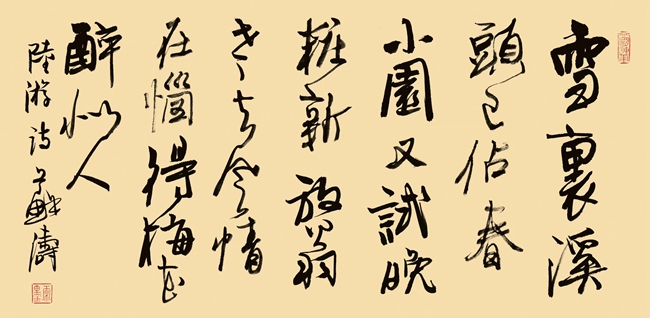 雪裏溪
頭已佔春
小園又試晚
粧新放翁
老去風情
在惱得梅花
醉似人
陸游詩 蘇濤